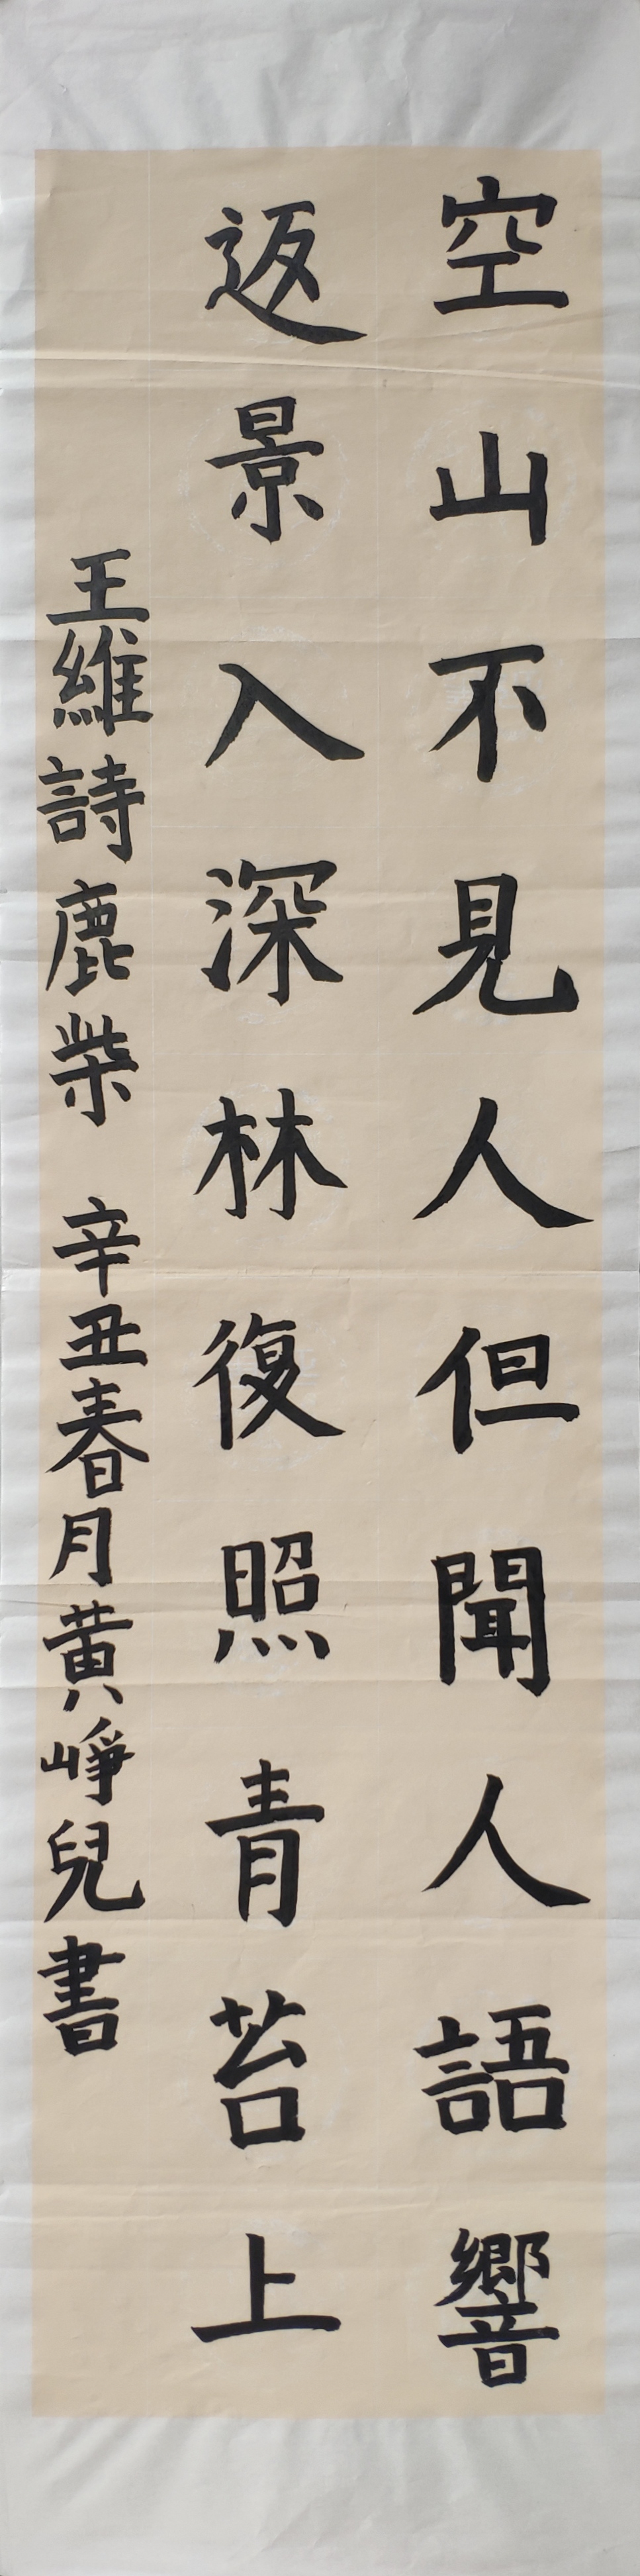 空山不見人但聞人語響
返景入深林復照青苔上
王維詩鹿柴 辛丑春月黄崢兒書